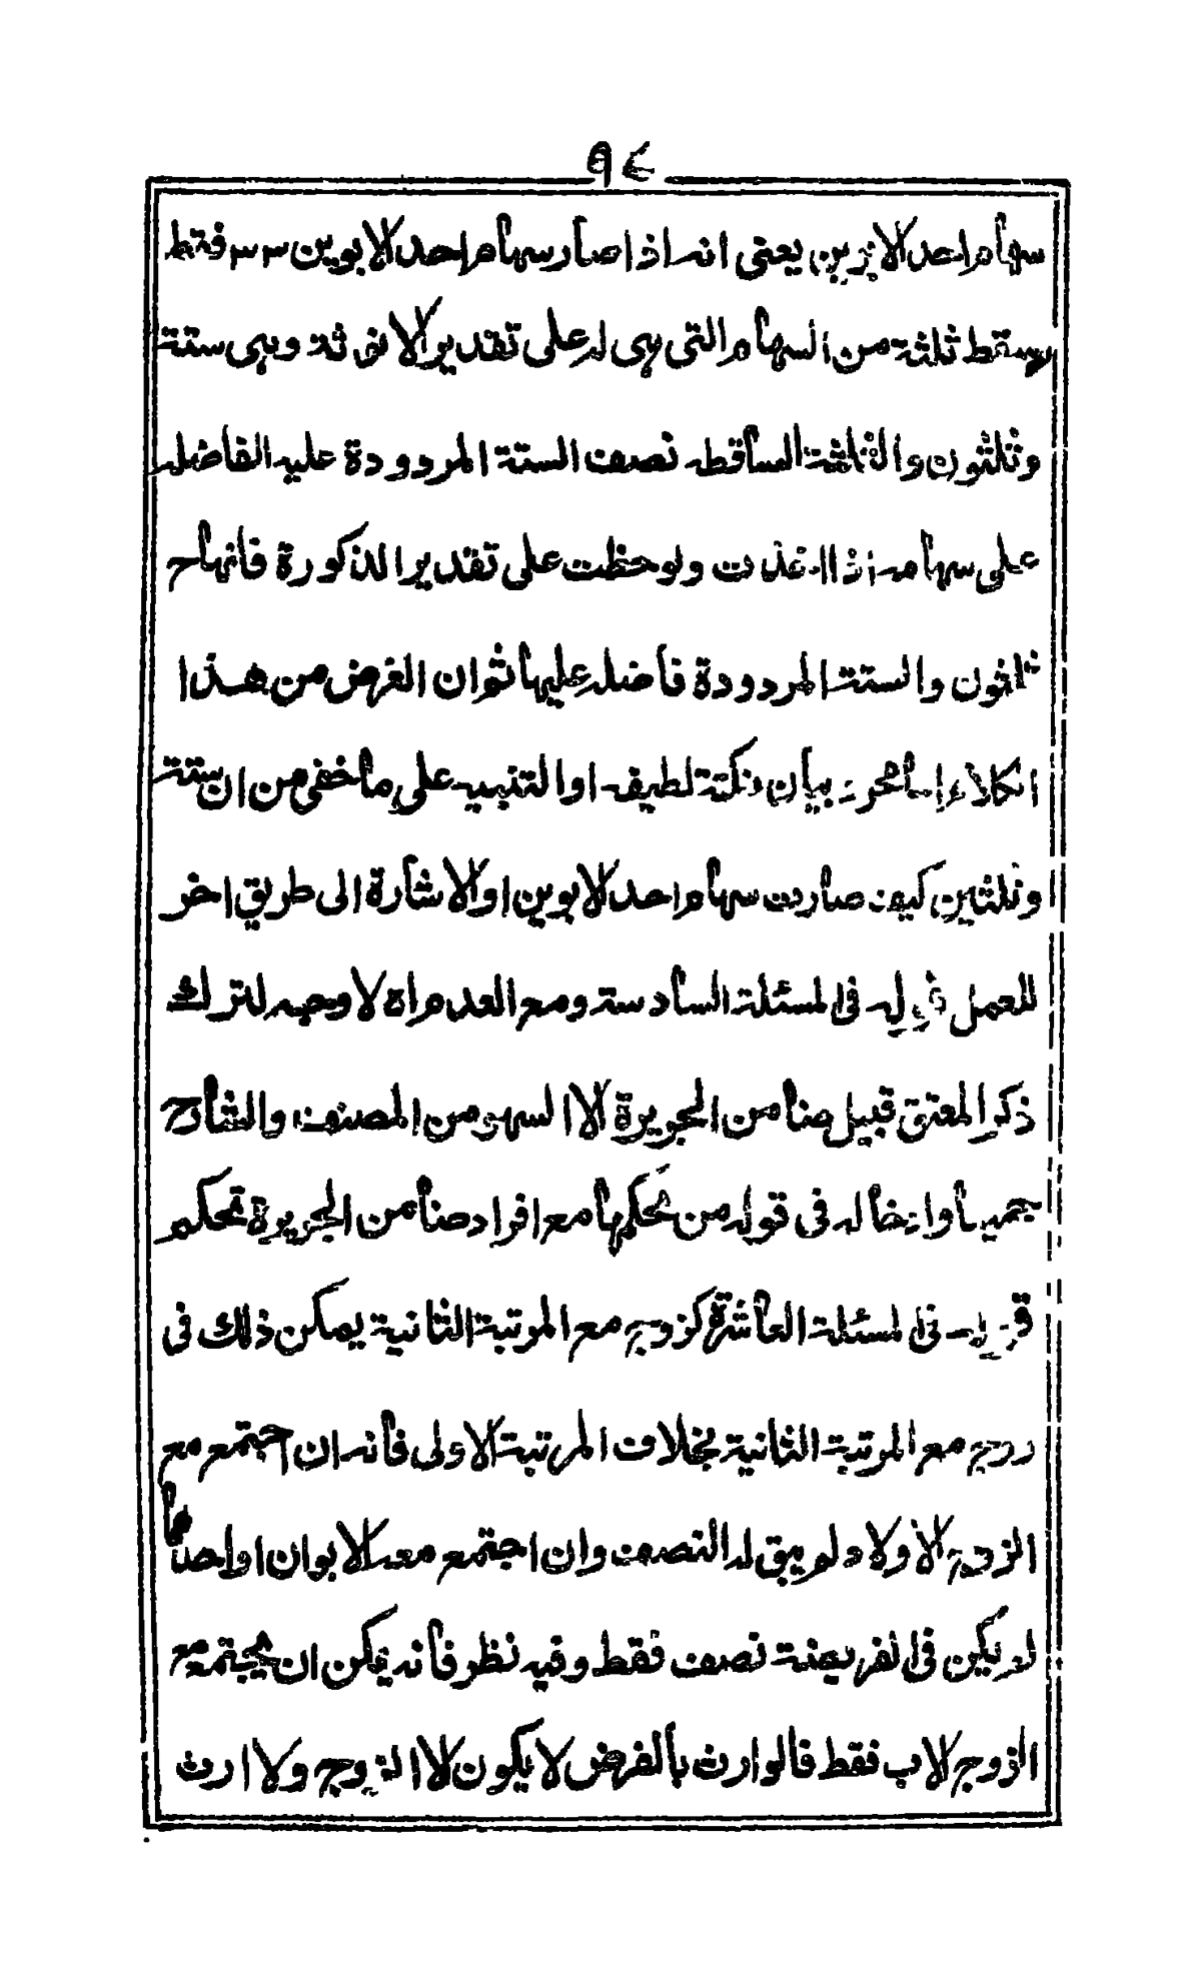 ٩٤
سهام احد الابوين يعنى انه اذا صار سهام احد الابوين ٣٣ فقط
يسقط ثلثة من السهام التى هى له على تقدير الانوثة وهى ستة
وثلثون والثلثة الساقطه نصف الستة المردودة عليه الفاضله
على سهامه اذا اخذت ولوحظت على تقدير الذكورة فانهاح
ثلثون والستة المردودة فاضله عليها ثم ان الغرض من هذا
الكلام بيان نكتة لطيفه او التنبيه على ما خفى من ان ستة
وثلثين كيف صارت سهام احد الابوين او الاشارة الى طريق اخر
للعمل قوله فى المسئلة السادسة ومع العدم اه لا وجه لترك
ذكر المعتق قبيل ضامن الجريرة الا السهو من المصنف والشارح
جميعا وادخاله فى قوله من بحكمها مع افراد ضامن الجريرة تحكم
قوله فى المسئلة العاشرة كزوج مع المرتبة الثانية يمكن ذلك فى
زوج مع المرتبة الثانية بخلاف المرتبة الاولى فانه ان اجتمع مع
الزوج الاولاد لم يبق له النصف وان اجتمع معه الابوان او احدهما
لم يكن فى الفريضة نصف فقط وفيه نظر فانه يمكن ان يجتمع مع
الزوج الاب فقط فالوارث بالفرض لا يكون الا الزوج ولا ارث